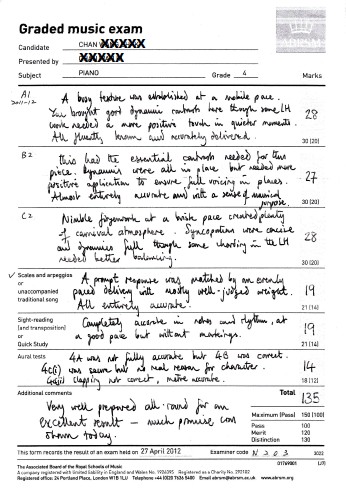 Graded music exam
ABRSM
Candidate CHAN
Presented by
Subject PIANO Grade 4 Marks
A1
2011-12
A busy texture was established at a mobile pace.
You brought good dynamic contrasts here though some LH
work needed a more positive touch in quieter moments.
All fluently known and accurately delivered.
28
30 (20)
B2
This had the essential contrasts needed for this
piece. Dynamics were all in place but needed more
positive application to ensure full voicing in places.
Almost entirely accurate and with a sense of musical
purpose.
27
30 (20)
C2
Nimble fingerwork at a brisk pace created plenty
of carnival atmosphere. Syncopations were concise
and dynamics full though some chording in the LH
needed better balancing.
28
30 (20)
✓ Scales and arpeggios
or
unaccompanied
traditional song
A prompt response was matched by an evenly
paced delivery with mostly well-judged weight.
All entirely accurate.
19
21 (14)
Sight-reading
(and transposition)
or
Quick Study
Completely accurate in notes and rhythm, at
a good pace but without markings.
19
21 (14)
Aural tests
4A was not fully accurate but 4B was correct.
4C(i) was secure but no real reason for character.
4C(ii) clapping not correct, metre accurate.
14
18 (12)
Additional comments
Very well prepared all-round for an
excellent result – much promise was
shown today.
Total 135
Maximum (Pass) 150 (100)
Pass 100
Merit 120
Distinction 130
This form records the result of an exam held on 27 April 2012 Examiner code N203 3022
The Associated Board of the Royal Schools of Music 01769001 (J7)
A company registered with limited liability in England and Wales No. 1926395 Registered as a Charity No. 292182
Registered office: 24 Portland Place, London W1B 1LU Telephone +44 (0)20 7636 5400 Email abrsm@abrsm.ac.uk www.abrsm.org